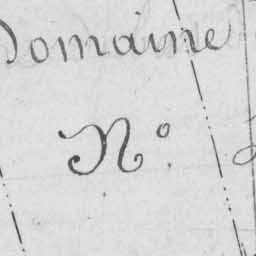 Domaine
N°.